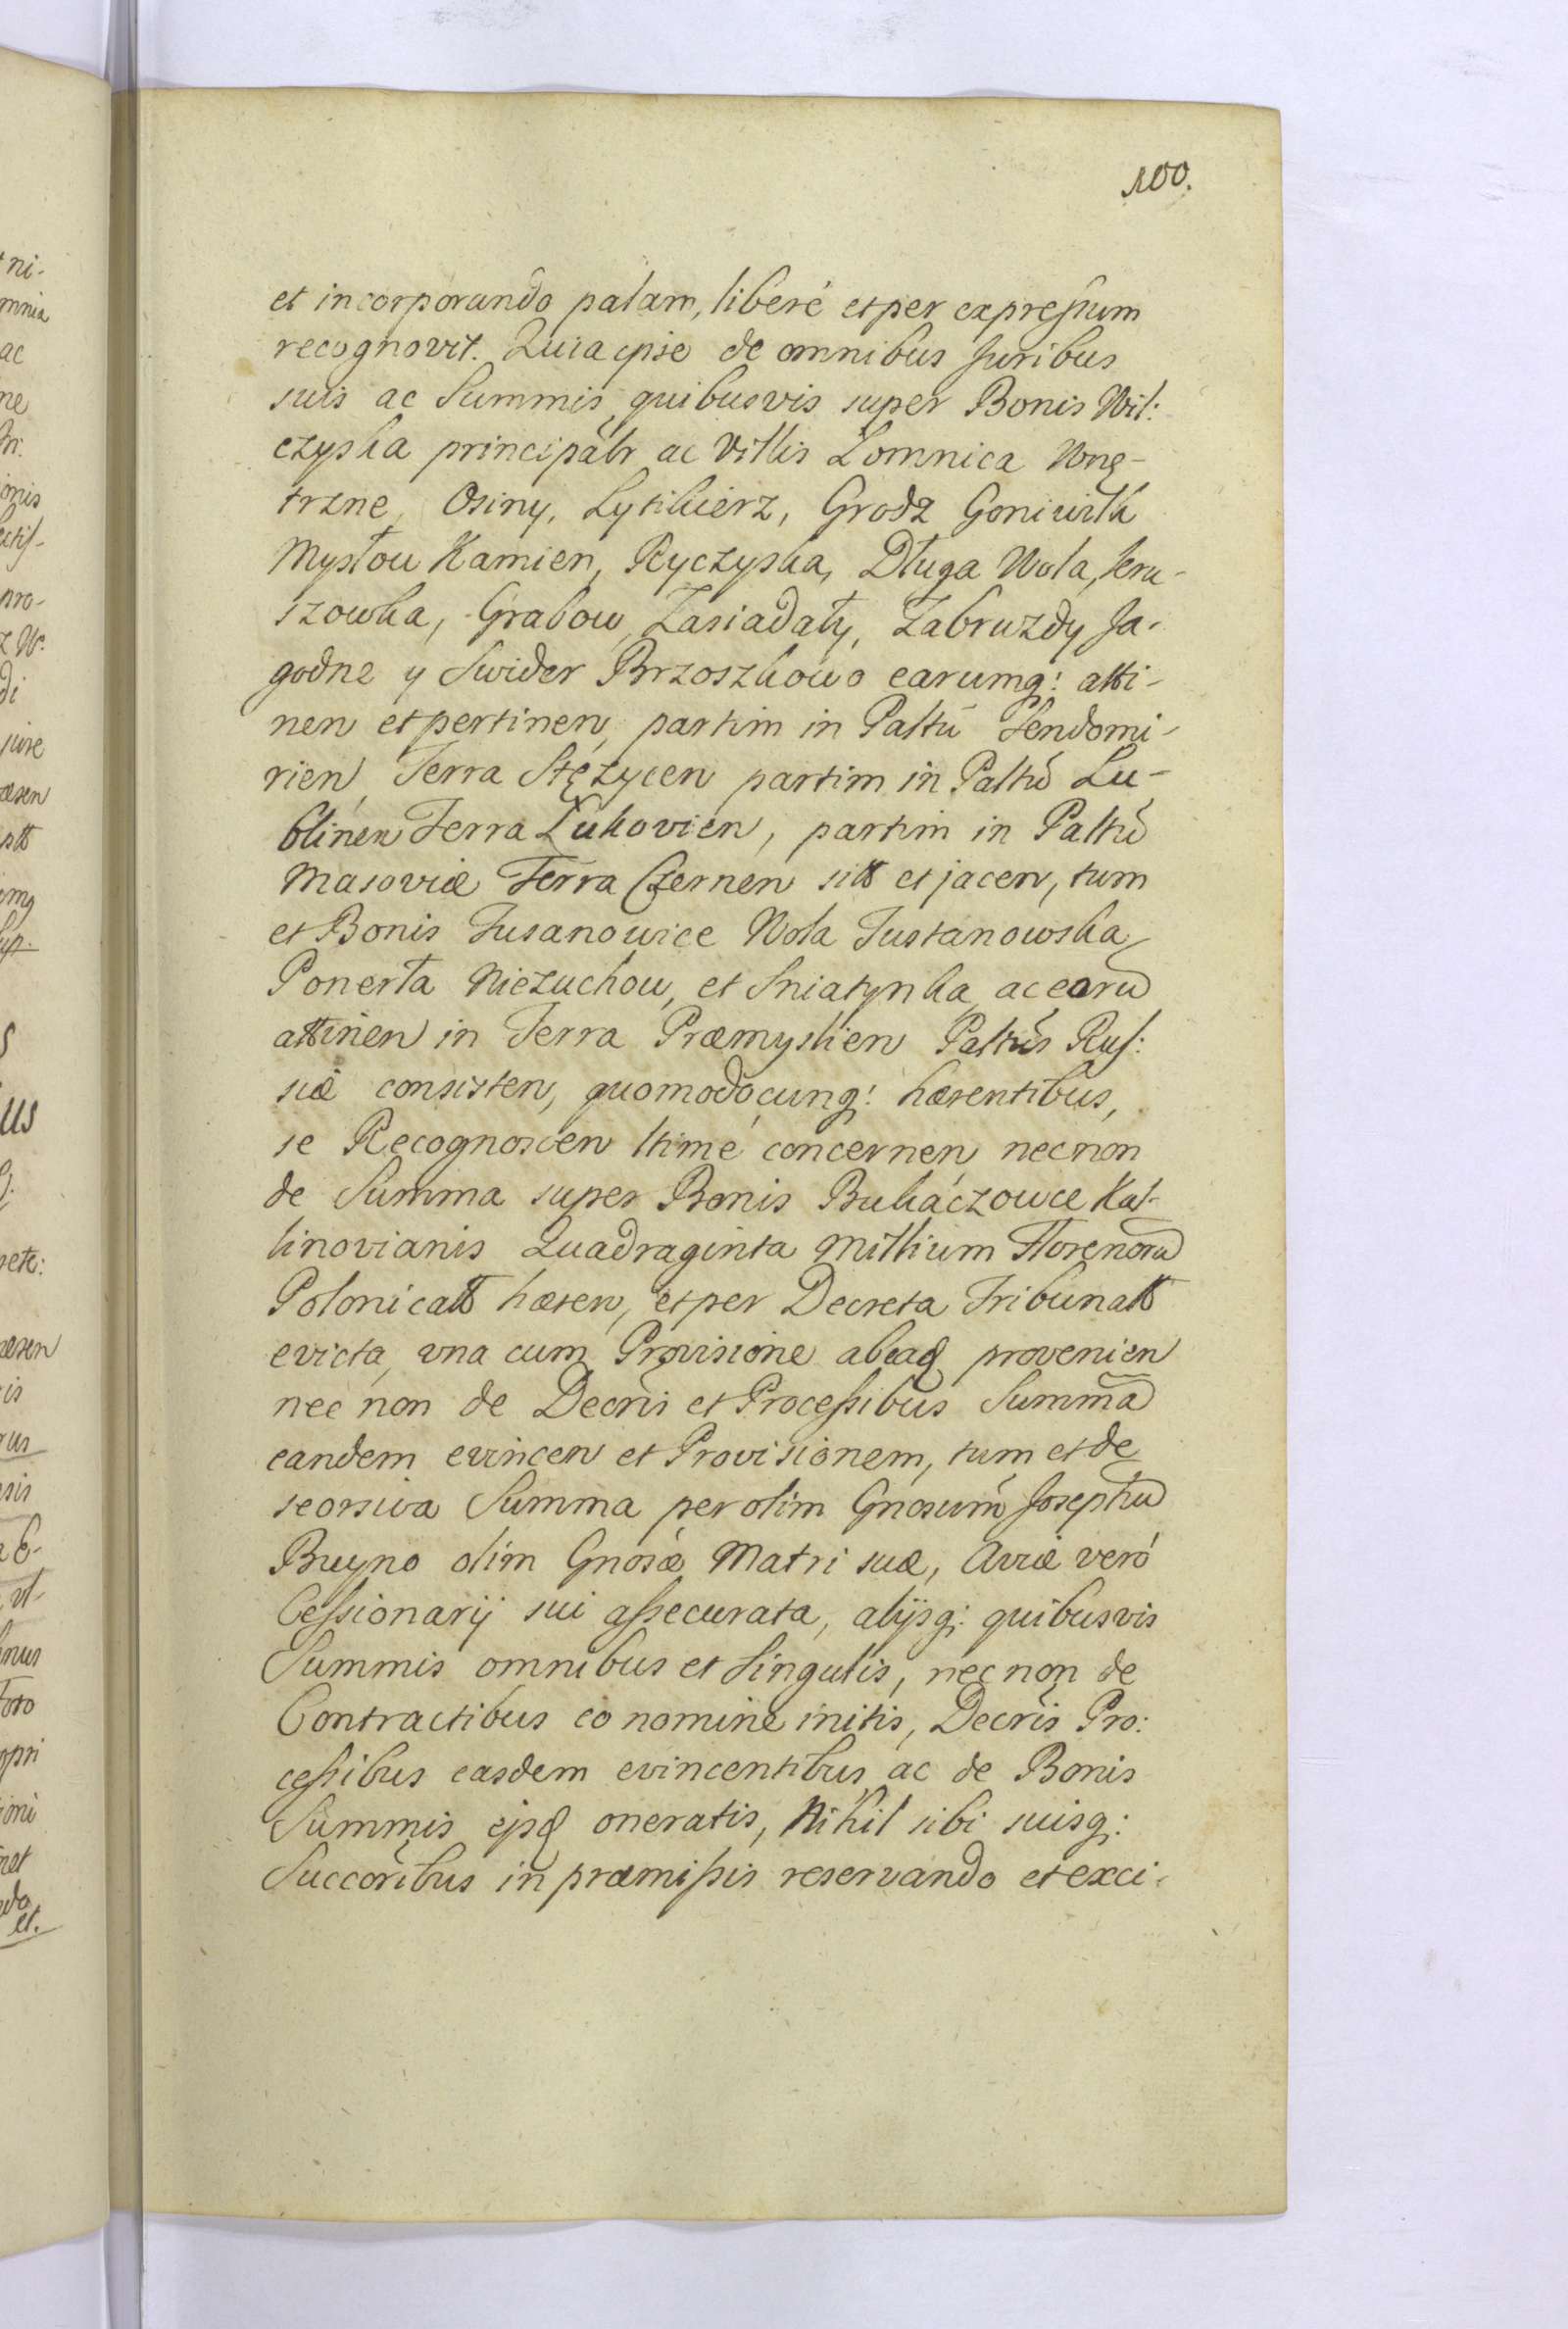 100.
et incorporando palam, liberé et per expreſsum
recognovit. Quia ipse de omnibus Juribus
suis ac Summis quibusvis super Bonis Wil:
czyska principalr ac Villis Łomnica Wnę-
trzne, Osiny, Lytikierz, Grodz Goniwilk
Mysłow Kamien, Ryczyska, Długa Wola, Jeru-
szowka, Grabow, Zasiadały, Zabruzdy Ja-
godne y Swider Brzoszkowo earumq: atti-
nen et pertinen, partim in Paltu Sendomi-
rien Terra Stężycen partim in Paltu Lu-
blinen Terra Łukovien, partim in Paltu
Masoviæ Terra Czernen sitt et jacen, tum
et Bonis Tusanowice Wola Tustanowska
Ponerła Niezuchow, et Sniatynka ac earū
attinen in Terra Præmyslien Paltus Ruſ:
siæ consisten, quomodocunq: hærentibus,
se Recognoscen ltimé concernen necnon
de Summa super Bonis Bukaczowce Kal-
linovianis Quadraginta Millium Florenorū
Polonicatt hæren, et per Decreta Tribunatt
evicta, una cum Provisione abeaq provenien
nec non de Decris et Proceſsibus Summā
eandem evincen et Provisionem, tum et de
seorsiva Summa per olim Gnosum Josephū
Buyno olim Gnosæ Matri suæ, Aviæ veró
Ceſsionarij sui aſsecurata, alijsq: quibusvis
Summis omnibus et Singulis, nec non de
Contractibus eo nomine initis, Decris Pro:
ceſsibus easdem evincentibus ac de Bonis
Summis ejsd oneratis, Nihil sibi suisq:
Succoribus in præmiſsis reservando et exci-